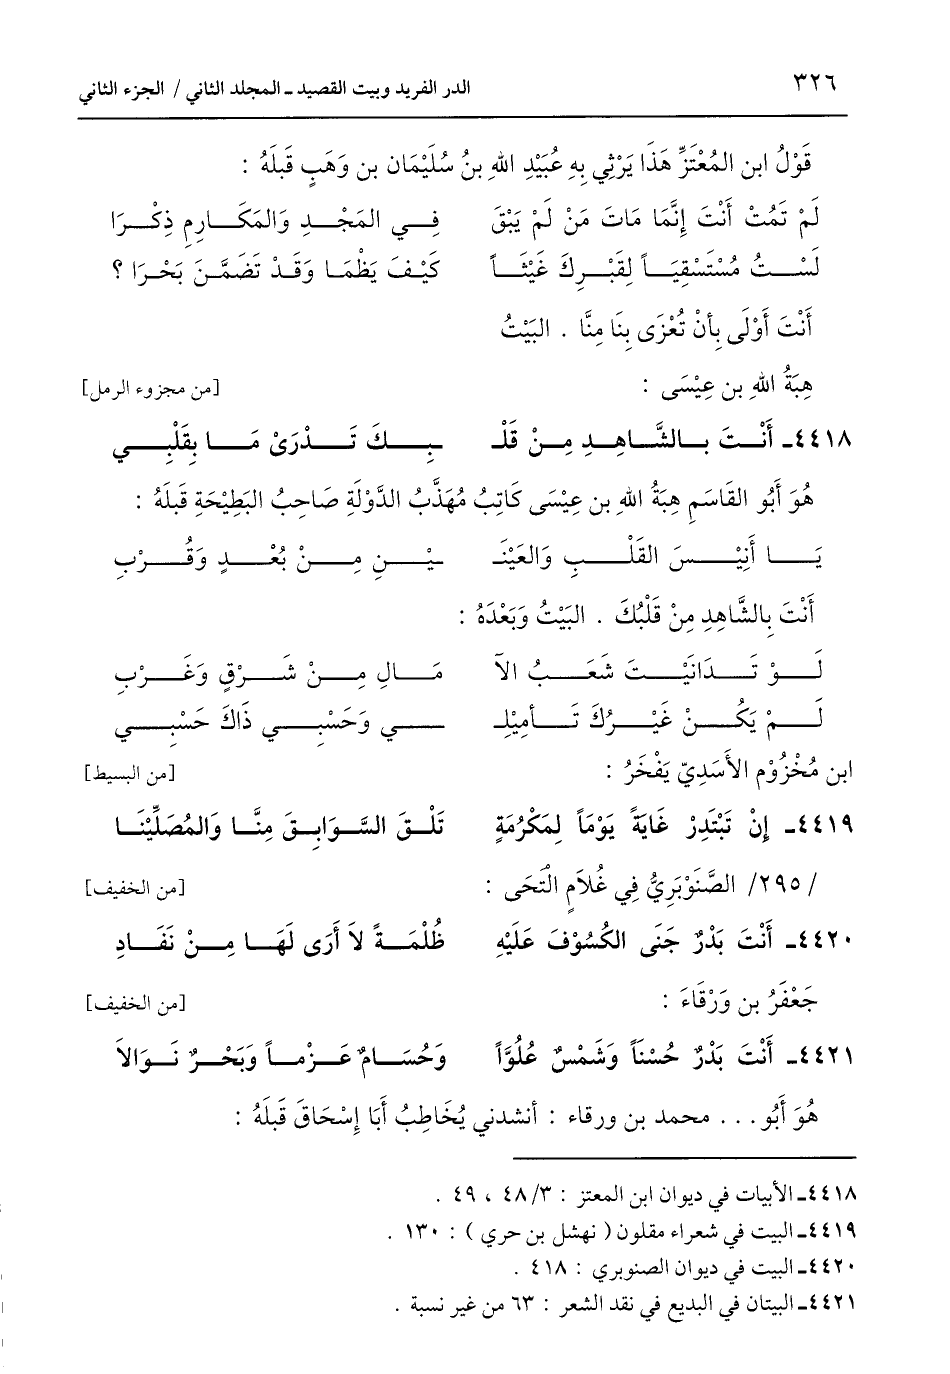 ٣٢٦ الدر الفريد وبيت القصيد ـ المجلد الثاني / الجزء الثاني
قَوْلُ ابن المُعْتَزِّ هَذَا يَرْثِي بِهِ عُبَيْدِ اللهِ بنُ سُلَيْمَان بن وَهَبٍ قَبلَهُ :
لَمْ تَمُتْ أَنْتَ إِنَّمَا مَاتَ مَنْ لَمْ يَبْقَ فِي المَجْدِ وَالمَكَارِمِ ذِكْرَا
لَسْتُ مُسْتَسْقِيَاً لِقَبْرِكَ غَيْثَاً كَيْفَ يَظْمَا وَقَدْ تَضَمَّنَ بَحْرَا ؟
أَنْتَ أَوْلَى بِأَنْ تُعْزَى بِنَا مِنَّا . البَيْتُ
هِبَةُ اللهِ بن عِيْسَى : [من مجزوء الرمل]
٤٤١٨ـ أَنْتَ بِالشَّاهِدِ مِنْ قَلْـ ـبِكَ تَدْرَىْ مَا بِقَلْبِي
هُوَ أَبُو القَاسَمِ هِبَةُ اللهِ بن عِيْسَى كَاتِبُ مُهَذَّبُ الدَّوْلَةِ صَاحِبُ البَطِيْحَةِ قَبلَهُ :
يَا أَنِيْسَ القَلْبِ وَالعَيْنَـ ـيْنِ مِنْ بُعْدٍ وَقُرْبِ
أَنْتَ بِالشَّاهِدِ مِنْ قَلْبُكَ . البَيْتُ وَبَعْدَهُ :
لَوْ تَدَانَيْتَ شَعَبُ الآ مَالِ مِنْ شَرْقٍ وَغَرْبِ
لَمْ يَكُنْ غَيْرُكَ تَأمِيْلِـ ـي وَحَسْبِي ذَاكَ حَسْبِي
ابن مُخْزُوْم الأَسَدِيّ يَفْخَرُ : [من البسيط]
٤٤١٩ـ إِنْ تَبْتَدِرْ غَايَةً يَوْمَاً لِمَكْرُمَةٍ تَلْقَ السَّوَابِقَ مِنَّا وَالمُصَلِّيْنَا
/ ٢٩٥/ الصَّنَوْبَرِيُّ فِي غُلَامٍ الْتَحَى : [من الخفيف]
٤٤٢٠ـ أَنْتَ بَدْرٌ جَنَى الكُسُوْفَ عَلَيْهِ ظُلْمَةً لاَ أَرَى لَهَا مِنْ نَفَادِ
جَعْفَرُ بن وَرْقَاءَ : [من الخفيف]
٤٤٢١ـ أَنْتَ بَدْرٌ حُسْنَاً وَشَمْسٌ عُلُوَّاً وَحُسَامٌ عَزْمَاً وَبَحْرٌ نَوَالاَ
هُوَ أَبُو . . . محمد بن ورقاء : أنشدني يُخَاطِبُ أَبَا إِسْحَاقَ قَبلَهُ :
٤٤١٨ـ الأبيات في ديوان ابن المعتز : ٤٨/٣ ، ٤٩ .
٤٤١٩ـ البيت في شعراء مقلون ( نهشل بن حري ) : ١٣٠ .
٤٤٢٠ـ البيت في ديوان الصنوبري : ٤١٨ .
٤٤٢١ـ البيتان في البديع في نقد الشعر : ٦٣ من غير نسبة .